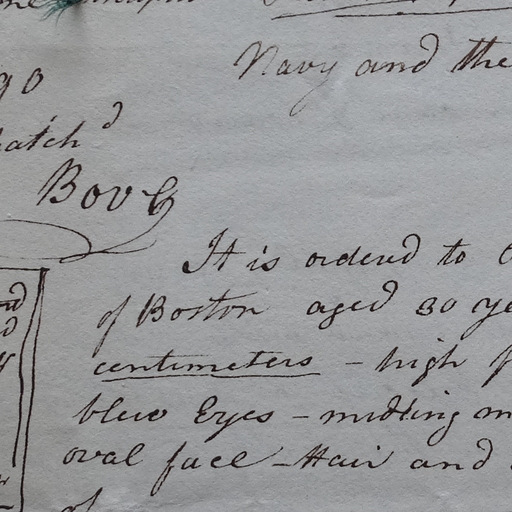 Navy and the
go
atch d
Bov
It is ordered to
of Boston aged 30 ye
centimeters - high f
blue Eyes - midling m
oval face - Hair and
of